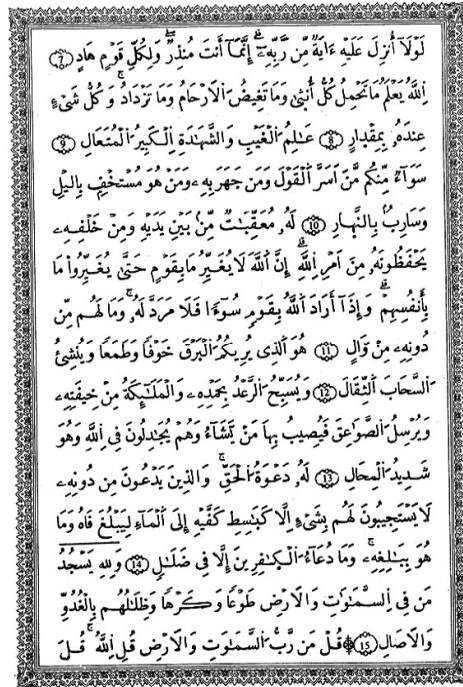 لَوْلَآ أُنزِلَ عَلَيْهِ ءَايَةٌ مِّن رَّبِّهِۦٓ إِنَّمَآ أَنتَ مُنذِرٌ وَلِكُلِّ قَوْمٍ هَادٍ 7
اِ۬للَّهُ يَعْلَمُ مَا تَحْمِلُ كُلُّ أُنثَىٰ وَمَا تَغِيضُ اُ۬لَارْحَامُ وَمَا تَزْدَادُ وَكُلُّ شَيْءٍ
عِندَهُۥ بِمِقْدَارٍ 8 عَٰلِمُ اُ۬لْغَيْبِ وَالشَّهَٰدَةِ اِ۬لْكَبِيرُ اُ۬لْمُتَعَالِ 9
سَوَآءٌ مِّنكُم مَّنَ اَسَرَّ اَ۬لْقَوْلَ وَمَن جَهَرَ بِهِۦ وَمَنْ هُوَ مُسْتَخْفٍ بِالَّيْلِ
وَسَارِبٌ بِالنَّهَارِ 10 لَهُۥ مُعَقِّبَٰتٌ مِّنۢ بَيْنِ يَدَيْهِ وَمِنْ خَلْفِهِۦ
يَحْفَظُونَهُۥ مِنَ اَمْرِ اِ۬للَّهِ إِنَّ اَ۬للَّهَ لَا يُغَيِّرُ مَا بِقَوْمٍ حَتَّىٰ يُغَيِّرُوا۟ مَا
بِأَنفُسِهِمْ وَإِذَآ أَرَادَ اَ۬للَّهُ بِقَوْمٍ سُوٓءًا فَلَا مَرَدَّ لَهُۥ وَمَا لَهُم مِّن
دُونِهِۦ مِنْ وَّالٍ 11 هُوَ اَ۬لذِى يُرِيكُمُ اُ۬لْبَرْقَ خَوْفًا وَطَمَعًا وَيُنشِئُ
اُ۬لسَّحَابَ اَ۬لثِّقَالَ 12 وَيُسَبِّحُ اُ۬لرَّعْدُ بِحَمْدِهِۦ وَالْمَلَٰٓئِكَةُ مِنْ خِيفَتِهِۦ
وَيُرْسِلُ اُ۬لصَّوَٰعِقَ فَيُصِيبُ بِهَا مَنْ يَّشَآءُ وَهُمْ يُجَٰدِلُونَ فِى اِ۬للَّهِ وَهُوَ
شَدِيدُ اُ۬لْمِحَالِ 13 لَهُۥ دَعْوَةُ اُ۬لْحَقِّ وَالذِينَ يَدْعُونَ مِن دُونِهِۦ
لَا يَسْتَجِيبُونَ لَهُم بِشَيْءٍ اِلَّا كَبَٰسِطِ كَفَّيْهِ إِلَى اَ۬لْمَآءِ لِيَبْلُغَ فَاهُ وَمَا
هُوَ بِبَٰلِغِهِۦ وَمَا دُعَآءُ اُ۬لْكَٰفِرِينَ إِلَّا فِى ضَلَٰلٍ 14 وَلِلهِ يَسْجُدُ
مَن فِى اِ۬لسَّمَٰوَٰتِ وَالَارْضِ طَوْعًا وَكَرْهًا وَظِلَٰلُهُم بِالْغُدُوِّ
وَالَاصَالِ 15 ۞ قُلْ مَن رَّبُّ اُ۬لسَّمَٰوَٰتِ وَالَارْضِ قُلِ اِ۬للَّهُ قُلَ